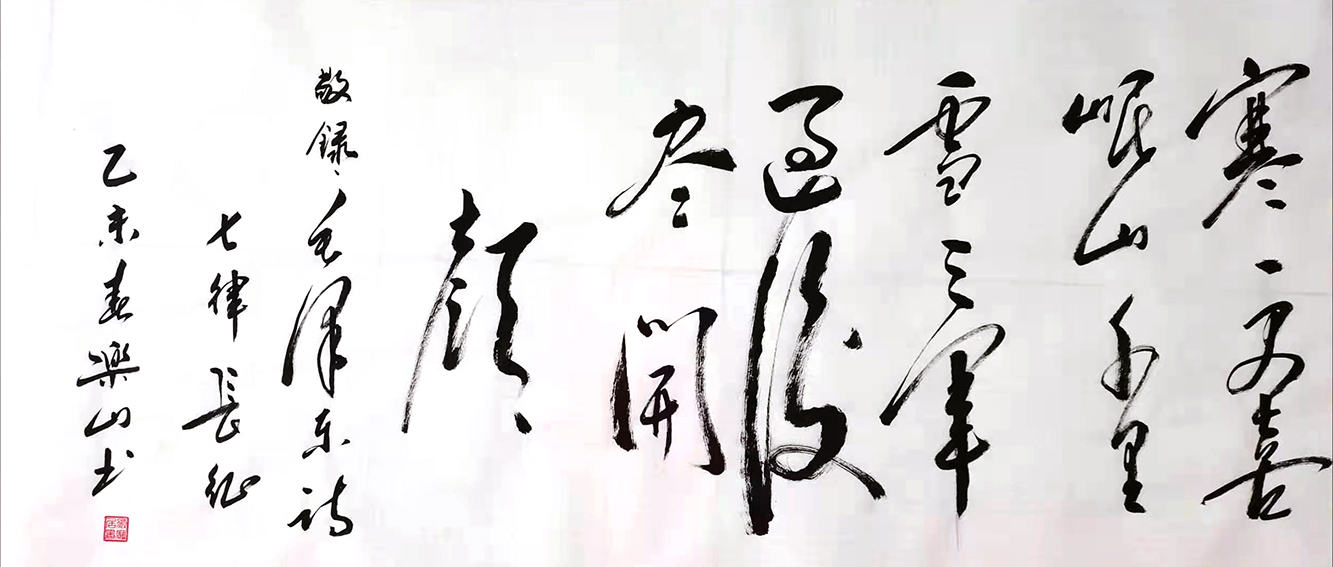 寒更喜
岷山千里
雪三军
过後
尽開
颜
敬録毛泽东诗
七律長征
乙未春樂山书